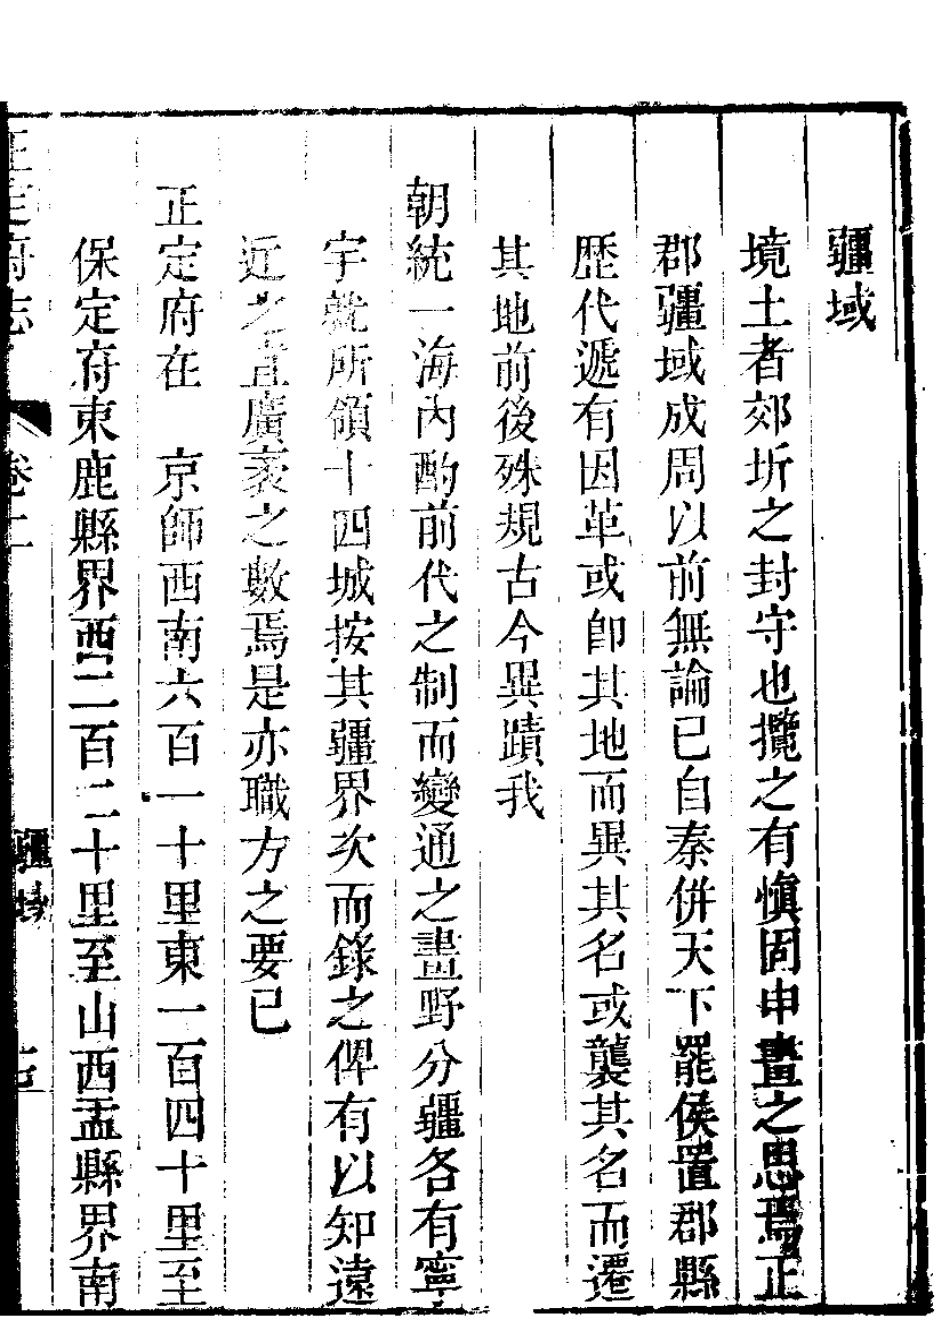 疆域
境土者郊圻之封守也攬之有愼固申畫之思焉正
郡疆域成周以前無論已自秦併天下罷侯置郡縣
歷代遞有因革或卽其地而異其名或襲其名而遷
其地前後殊規古今異蹟我
朝統一海內酌前代之制而變通之畫野分疆各有寧
宇就所領十四城按其疆界次而錄之俾有以知遠
近之宜廣袤之數焉是亦職方之要已
正定府在　京師西南六百一十里東一百四十里至
保定府束鹿縣界西二百二十里至山西盂縣界南
正定府志　卷　疆域